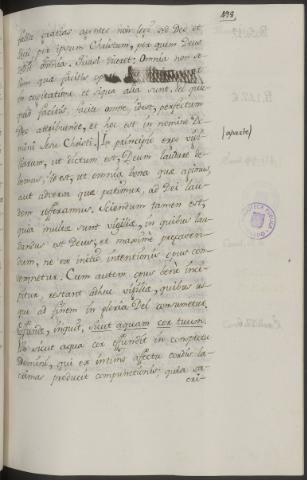 498.
facite gratias agentes non ipsi, sed Deo et
Patri per ipsum Christum, per quem Deus
omnia. Quasi diceret: Omnia non so-
lum quæ facitis
in cogitatione et si qua alia sunt, et quic-
quid facitis, facite ante, idest, perfectum
Deo attribuendo, et hoc est in nomine Do-
mini Jesu Christi. In principio ergo vigi-
liarum, ut dictum est, Deum laudare de-
bemus, id est, ut omnia bona quæ agimus,
aut adversa quæ patimur, ad Dei lau-
dem offeramus. Sciendum tamen est,
quia multæ sunt vigiliæ, in quibus lau-
dandus est Deus, et maxime præcaven-
dum, ne ex initio intentionis opus con-
temnetur. Cum autem opus bene inci-
pitur, restant adhuc vigiliæ, quibus us-
que ad finem in gloria Dei consumetur.
Effunde, inquit, sicut aquam cor tuum.
sicut aqua cor effundit in conspectu
Domini, qui ex intimo affectu cordis la-
crimas producit compunctionis; quia sa-
cri-
aparte